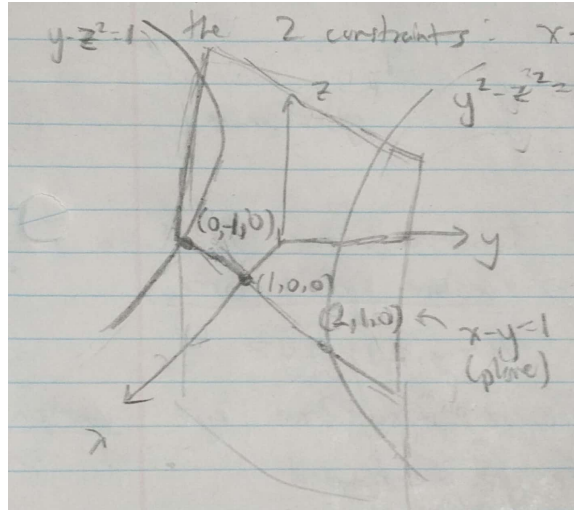 the 2 constraints: x-
y-z²=1
y²-z²=
z
(0,-1,0)
y
(1,0,0)
(2,1,0) ← x-y=1
(plane)
x